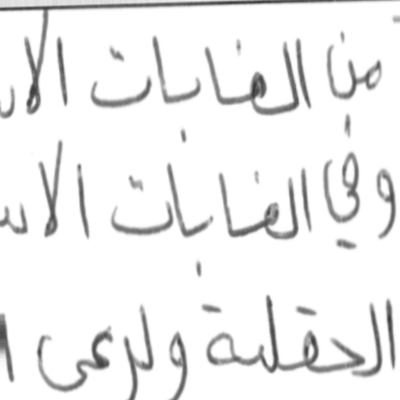 من الغابات الا
وفي الغابات الا
الحقلية ولرعى ا